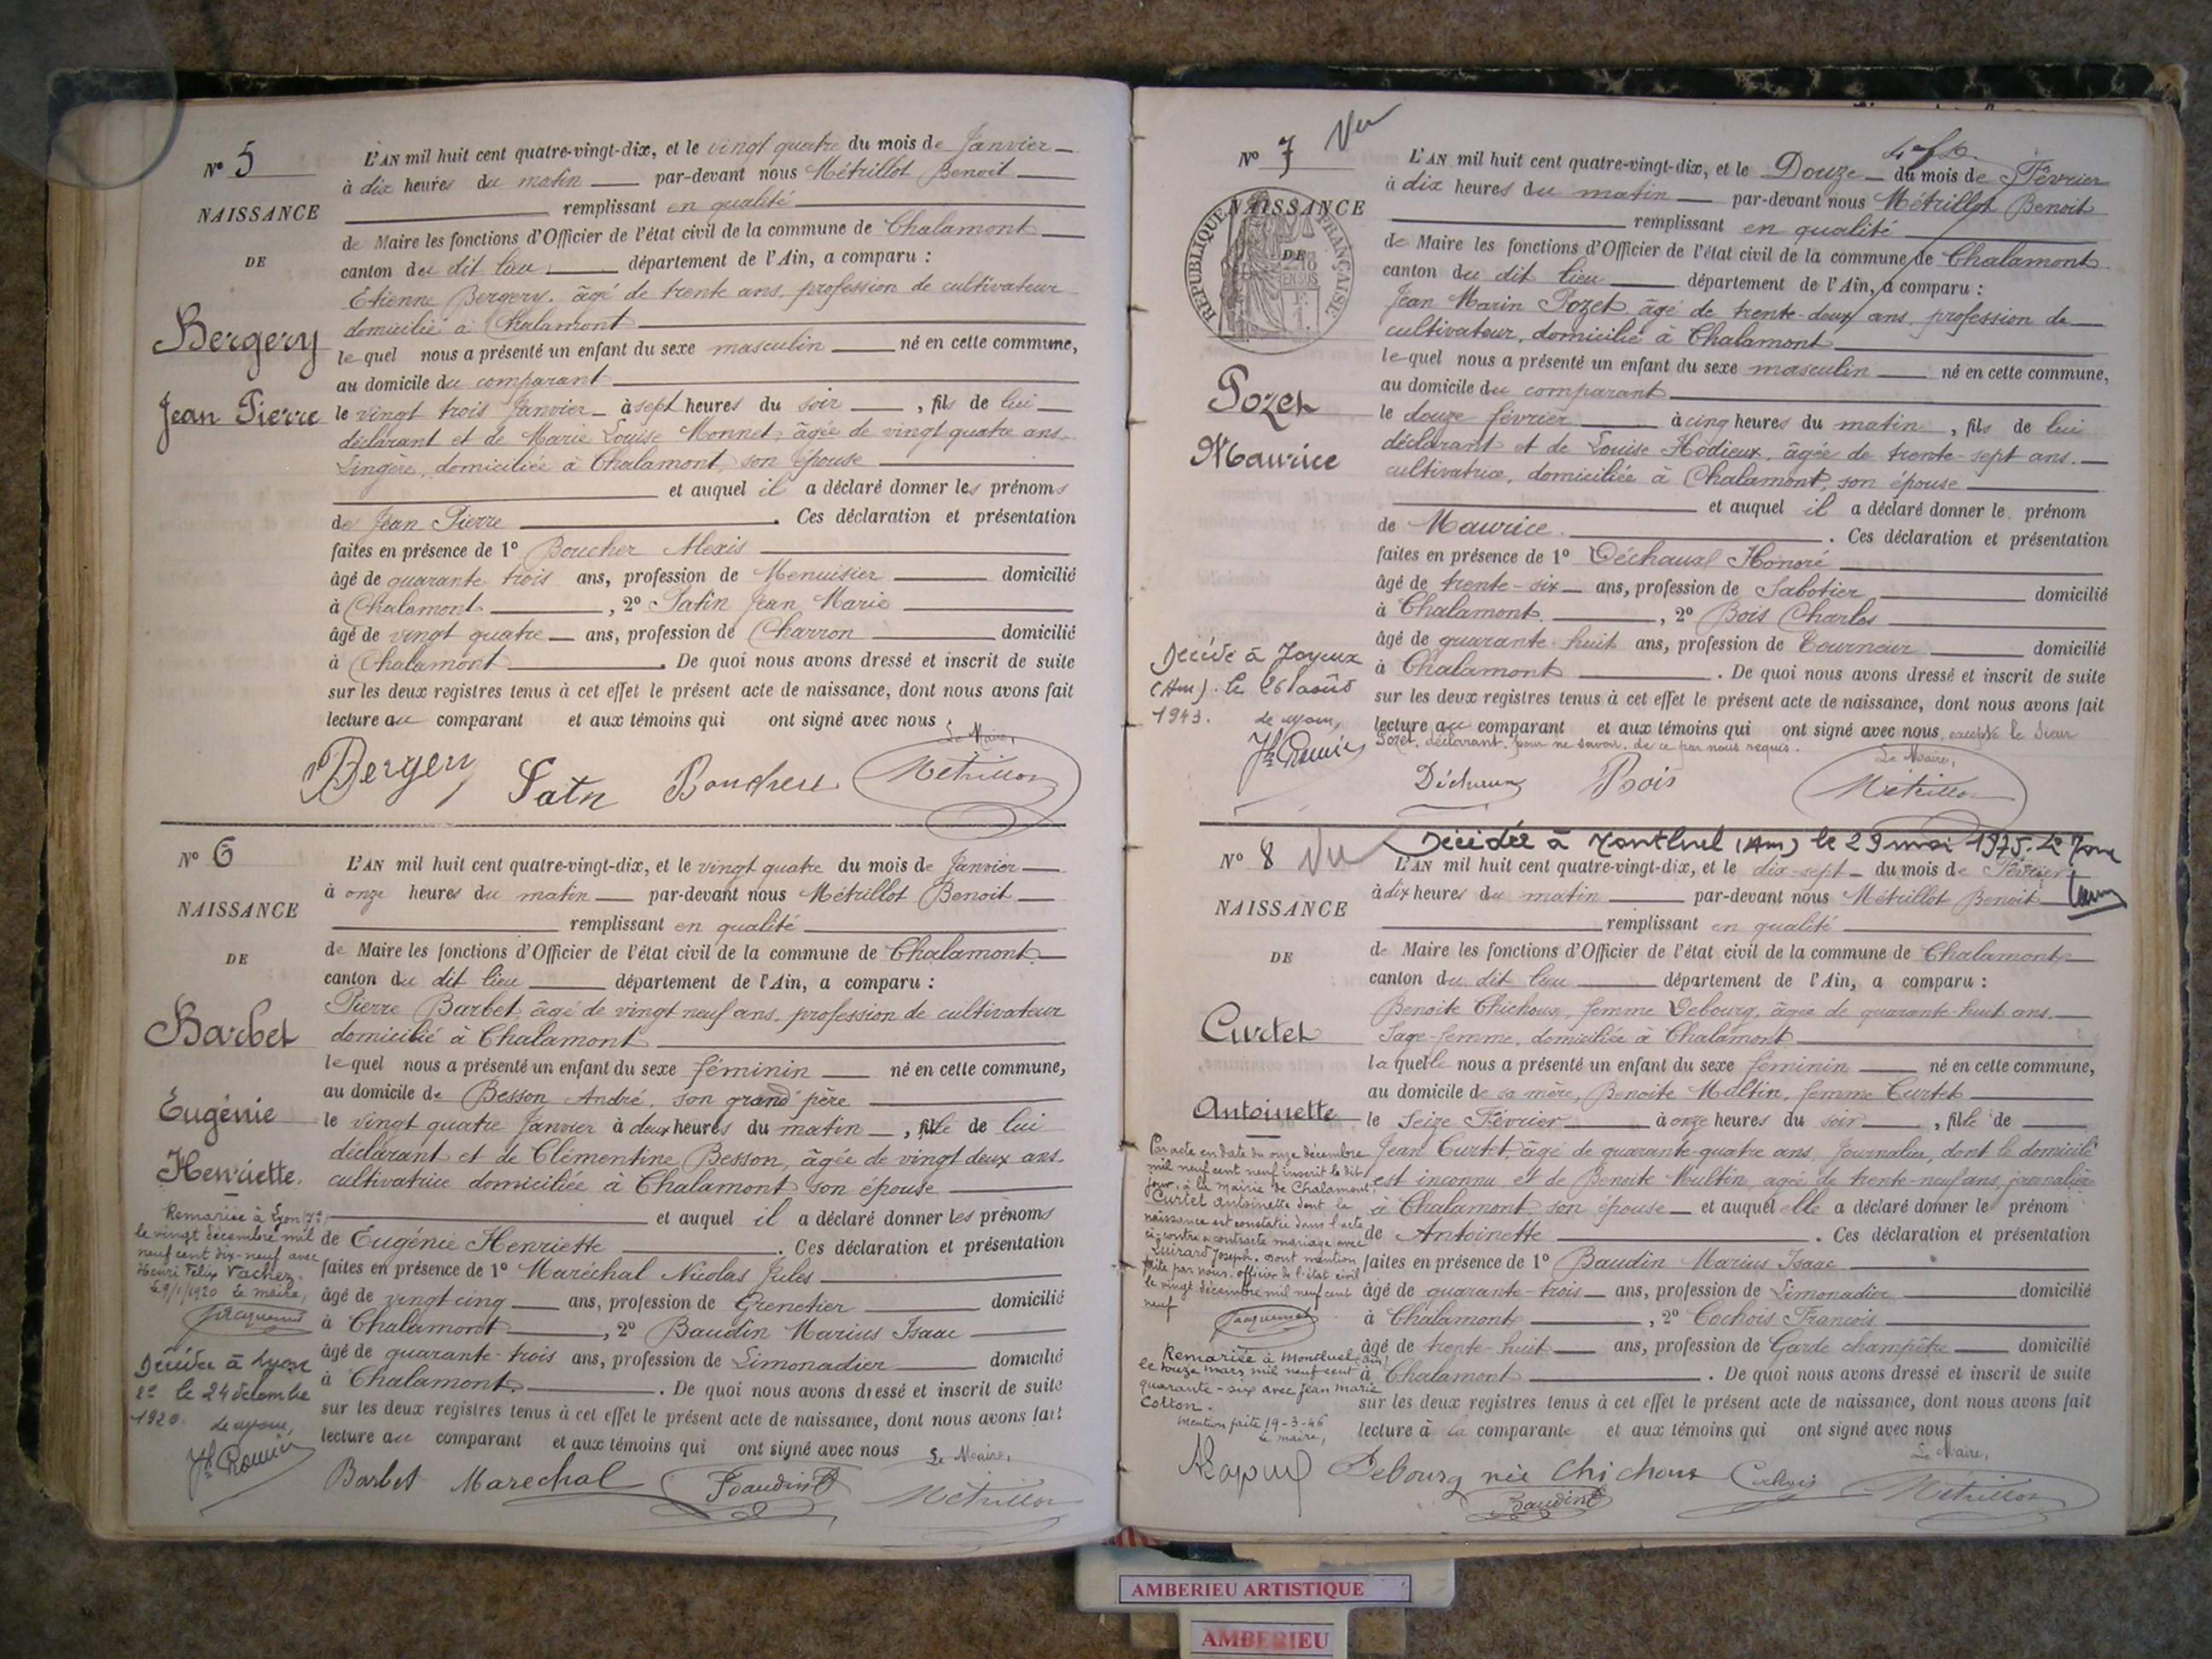 Nº 5
NAISSANCE
DE
Bergery
Jean Pierre
L'AN mil huit cent quatre-vingt-dix, et le vingt quatre du mois de Janvier
à dix heures du matin par-devant nous Métrillot Benoit
remplissant en qualité
de Maire les fonctions d'Officier de l'état civil de la commune de Chalamont
canton du dit lieu département de l'Ain, a comparu :
Etienne Bergery, âgé de trente ans, profession de cultivateur
domicilié à Chalamont
lequel nous a présenté un enfant du sexe masculin né en cette commune,
au domicile du comparant
le vingt trois Janvier à sept heures du soir, fils de lui
déclarant et de Marie Louise Monnet, âgée de vingt quatre ans,
Lingère, domiciliée à Chalamont, son épouse
et auquel il a déclaré donner les prénoms
de Jean Pierre. Ces déclaration et présentation
faites en présence de 1º Boucher Alexis
âgé de quarante trois ans, profession de Menuisier domicilié
à Chalamont, 2º Patin Jean Marie
âgé de vingt quatre ans, profession de Charron domicilié
à Chalamont. De quoi nous avons dressé et inscrit de suite
sur les deux registres tenus à cet effet le présent acte de naissance, dont nous avons fait
lecture au comparant et aux témoins qui ont signé avec nous.
Le Maire,
Bergery Patin Boucher Métrillot
Nº 6
NAISSANCE
DE
Barbet
Eugénie
Henriette.
Remariée à Lyon 7e
le vingt décembre mil
neuf cent dix-neuf avec
Henri Félix Vachez.
le 9/1/1920 Le maire,
Jacquemet
Décédée à Lyon
2e le 24 décembre
1920. Le Maire,
L'AN mil huit cent quatre-vingt-dix, et le vingt quatre du mois de Janvier
à onze heures du matin par-devant nous Métrillot Benoit
remplissant en qualité
de Maire les fonctions d'Officier de l'état civil de la commune de Chalamont
canton du dit lieu département de l'Ain, a comparu :
Pierre Barbet, âgé de vingt neuf ans, profession de cultivateur
domicilié à Chalamont
lequel nous a présenté un enfant du sexe féminin né en cette commune,
au domicile de Besson André, son grand père
le vingt quatre Janvier à deux heures du matin, fille de lui
déclarant et de Clémentine Besson, âgée de vingt deux ans,
cultivatrice domiciliée à Chalamont son épouse
et auquel il a déclaré donner les prénoms
de Eugénie Henriette. Ces déclaration et présentation
faites en présence de 1º Maréchal Nicolas Jules
âgé de vingt cinq ans, profession de Grenetier domicilié
à Chalamont, 2º Baudin Marius Isaac
âgé de quarante-trois ans, profession de Limonadier domicilié
à Chalamont. De quoi nous avons dressé et inscrit de suite
sur les deux registres tenus à cet effet le présent acte de naissance, dont nous avons fait
lecture au comparant et aux témoins qui ont signé avec nous
Le Maire,
Barbet Marechal Baudin Métrillot
Nº 7 Vu
NAISSANCE
DE
REPUBLIQUE FRANÇAISE
Pozet
Maurice
Décédé à Joyeux
(Ain). le 26 août
1943. Le Maire,
L'AN mil huit cent quatre-vingt-dix, et le Douze du mois de Février
à dix heures du matin par-devant nous Métrillot Benoit
remplissant en qualité
de Maire les fonctions d'Officier de l'état civil de la commune de Chalamont
canton du dit lieu département de l'Ain, a comparu :
Jean Marin Pozet, âgé de trente-deux ans, profession de
cultivateur, domicilié à Chalamont
lequel nous a présenté un enfant du sexe masculin né en cette commune,
au domicile du comparant
le douze février à cinq heures du matin, fils de lui
déclarant et de Louise Hodieux, âgée de trente-sept ans,
cultivatrice, domiciliée à Chalamont, son épouse
et auquel il a déclaré donner le prénom
de Maurice. Ces déclaration et présentation
faites en présence de 1º Déchaux Honoré
âgé de trente-six ans, profession de Sabotier domicilié
à Chalamont, 2º Bois Charles
âgé de quarante-huit ans, profession de Tourneur domicilié
à Chalamont. De quoi nous avons dressé et inscrit de suite
sur les deux registres tenus à cet effet le présent acte de naissance, dont nous avons fait
lecture au comparant et aux témoins qui ont signé avec nous, excepté le Sieur
Pozet, déclarant, pour ne savoir, de ce par nous requis.
Le Maire,
Déchaux Bois Métrillot
Décédée à Montluel (Ain) le 29 mai 1975.
Nº 8 Vu
NAISSANCE
DE
Curtet
Antoinette
Par acte en date du onze décembre
mil neuf cent neuf inscrit le dit
jour, à la mairie de Chalamont,
Curtet Antoinette dont la
naissance est constatée dans l'acte
ci-contre a contracté mariage avec
Guirard Joseph. Dont mention
faite par nous, officier de l'état civil
le vingt décembre mil neuf cent
neuf
Jacquemet
Remariée à Montluel (Ain)
le douze mars mil neuf cent
quarante-six avec Jean Marie
Cotton.
Mention faite 19-3-46
Le maire,
L'AN mil huit cent quatre-vingt-dix, et le dix-sept du mois de Février
à dix heures du matin par-devant nous Métrillot Benoit
remplissant en qualité
de Maire les fonctions d'Officier de l'état civil de la commune de Chalamont
canton du dit lieu département de l'Ain, a comparu :
Benoite Chichoux, femme Debourg, âgée de quarante-huit ans,
Sage-femme, domiciliée à Chalamont
laquelle nous a présenté un enfant du sexe féminin né en cette commune,
au domicile de sa mère, Benoite Multin, femme Curtet
le Seize Février à onze heures du soir, fille de
Jean Curtet, âgé de quarante-quatre ans, Journalier, dont le domicile
est inconnu et de Benoite Multin, agée de trente-neuf ans, journalière
à Chalamont son épouse et auquel elle a déclaré donner le prénom
de Antoinette. Ces déclaration et présentation
faites en présence de 1º Baudin Marius Isaac
âgé de quarante-trois ans, profession de Limonadier domicilié
à Chalamont, 2º Cochois François
âgé de trente-huit ans, profession de Garde champêtre domicilié
à Chalamont. De quoi nous avons dressé et inscrit de suite
sur les deux registres tenus à cet effet le présent acte de naissance, dont nous avons fait
lecture à la comparante et aux témoins qui ont signé avec nous
Le Maire,
Debourg née Chichoux Cochois Métrillot
Baudin
AMBERIEU ARTISTIQUE
AMBERIEU